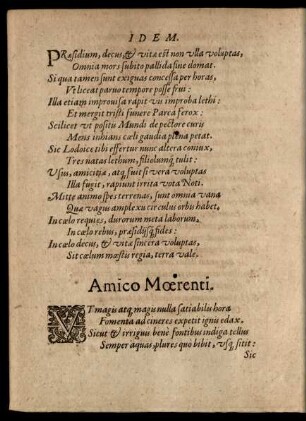 IDEM.
PRæsidium, decus, & vitæ est non vlla voluptas,
Omnia mors subito pallida fine domat.
Si qua tamen sunt exiguas concessa per horas,
Vt liceat paruo tempore posse frui:
Illa etiam improuisa rapit vis improba lethi:
Et mergit tristi funere Parca ferox:
Scilicet vt positis Mundi de pectore curis
Mens inhians cæli gaudia plena petat.
Sic Lodoice tibi effertur nunc altera coniux,
Tres natas lethum, filiolumq́ tulit:
Usus, amicitiæ, atq́ fuit si vera voluptas
Illa fugit, rapiunt irrita vota Noti.
Mitte animo spes terrenas, sunt omnia vana
Quæ vagus amplexu circulus orbis habet,
In cælo requies, durorum meta laborum,
In cælo rebus, præsidijsq́ fides:
In cælo decus, & vitæ sincera voluptas,
Sit cælum mæstis regia, terra vale.
Amico Mœrenti.
VT magis atq́ magis nulla satiabilis hora
Fomenta ad cineres expetit ignis edax.
Sicut & irriguis benè fontibus indiga tellus
Semper aquas, plures quò bibit, vsq́ sitit:
Sic